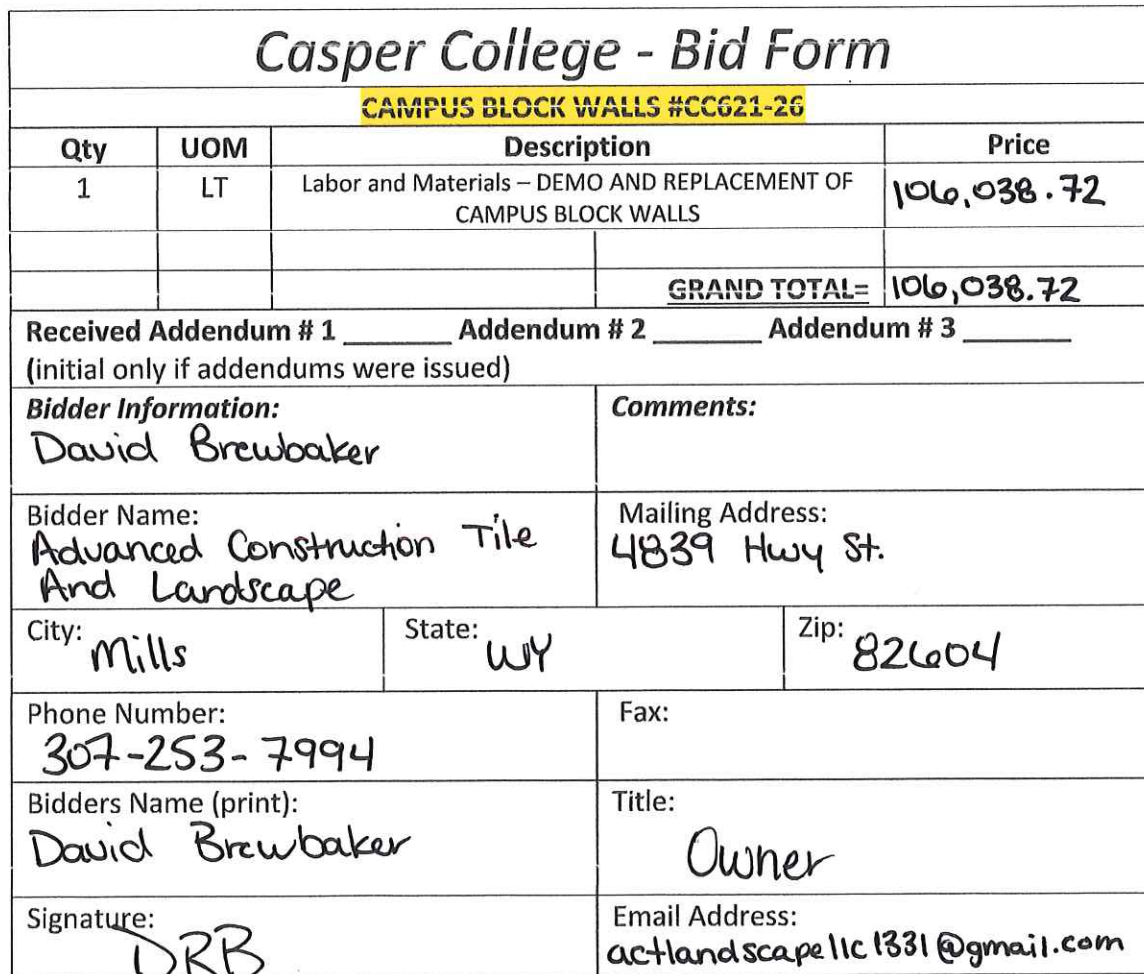 Casper College - Bid Form
CAMPUS BLOCK WALLS #CC621-26
Qty UOM Description Price
1 LT Labor and Materials – DEMO AND REPLACEMENT OF CAMPUS BLOCK WALLS 106,038.72
GRAND TOTAL= 106,038.72
Received Addendum # 1 ______ Addendum # 2 ______ Addendum # 3 ______
(initial only if addendums were issued)
Bidder Information:
David Brewbaker
Comments:
Bidder Name:
Advanced Construction Tile
And Landscape
Mailing Address:
4839 Hwy St.
City: Mills State: WY Zip: 82604
Phone Number:
307-253-7994
Fax:
Bidders Name (print):
David Brewbaker
Title:
Owner
Signature:
DRB
Email Address:
actlandscapellc1331@gmail.com